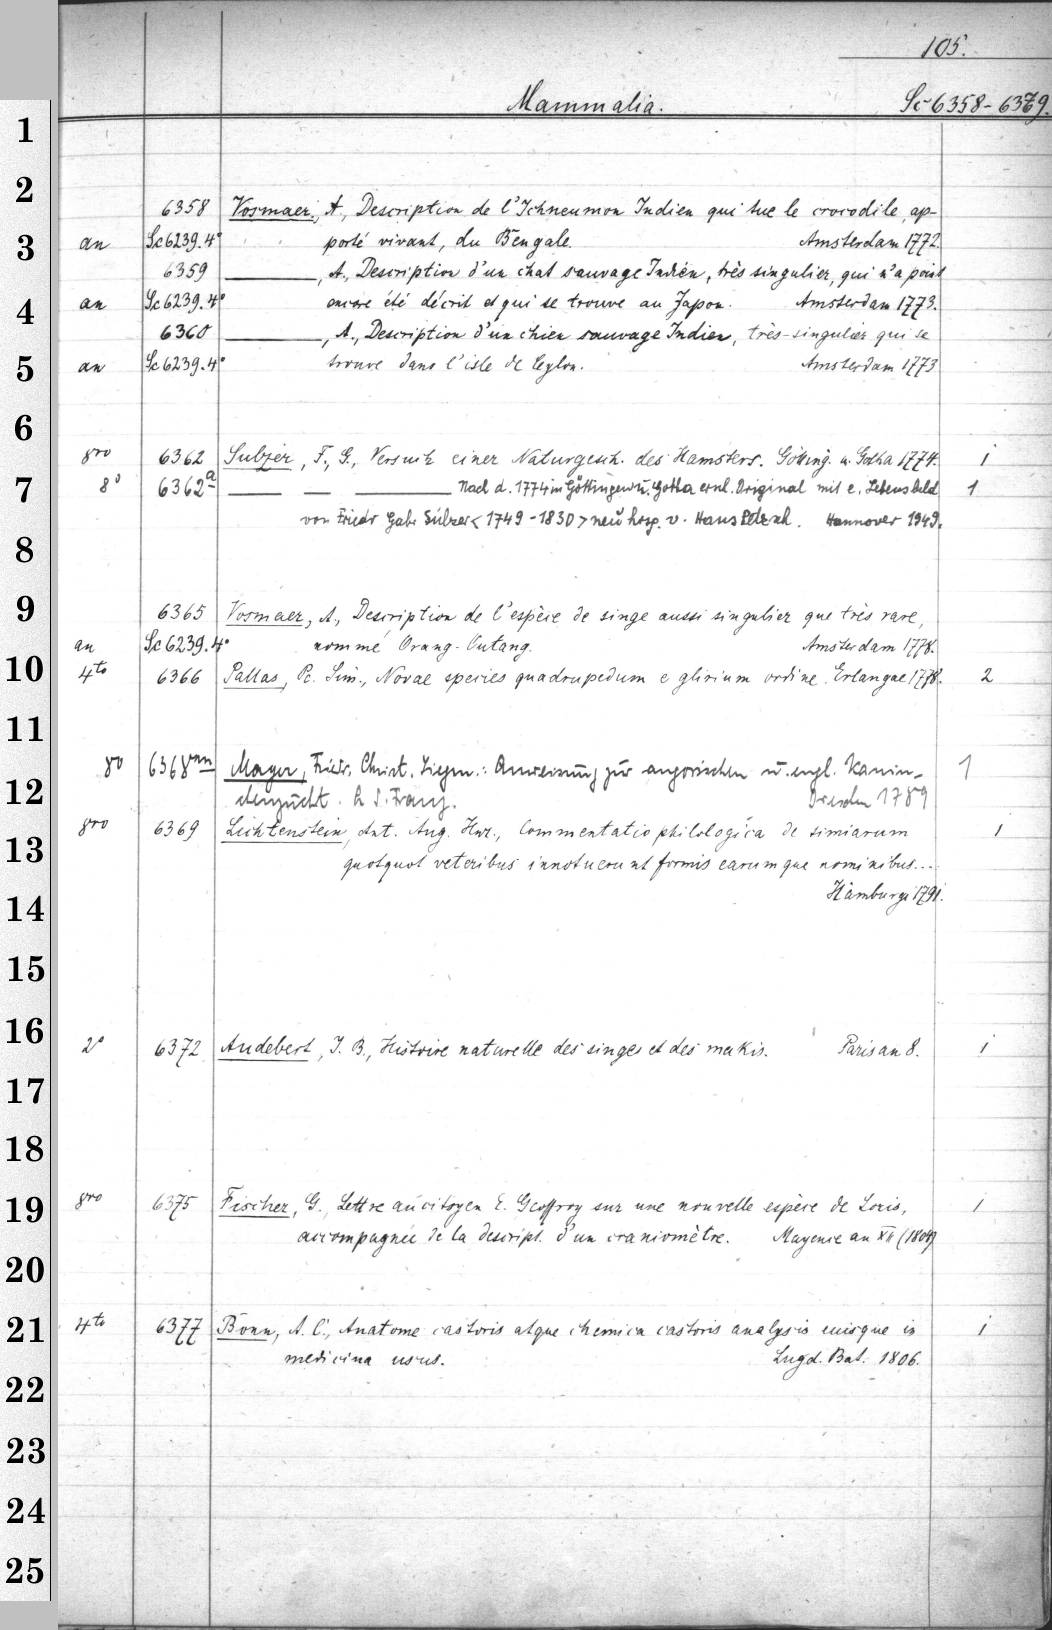 105.
Mammalia. Sc 6358-6379.
1
2
6358 Vosmaer, A., Description de l'Ichneumon Indien qui tue le crocodile, ap-
3 an Sc 6239.4° porté vivant, du Bengale. Amsterdam 1772.
6359 ———, A., Description d'un chat sauvage Indien, très singulier, qui n'a point
4 an Sc 6239.4° encore été décrit et qui se trouve au Japon. Amsterdam 1773.
6360 ———, A., Description d'un chien sauvage Indien, très-singulier qui se
5 an Sc 6239.4° trouve dans l'isle de Ceylon. Amsterdam 1773
6
8vo 6362 Sulzer, F., G., Versuch einer Naturgesch. des Hamsters. Götting. u. Gotha 1774. 1
7 8° 6362a ——— — ——— Nach d. 1774 in Göttingen u. Gotha ersch. Original mit e. Lebensbild 1
von Friedr. Gabr. Sulzer <1749-1830> neu hrsg. v. Hans Petzsch. Hannover 1949.
8
9 6365 Vosmaer, A., Description de l'espèce de singe aussi singulier que très rare,
an Sc 6239.4° nommé Orang-Outang. Amsterdam 1778.
10 4to 6366 Pallas, Pe. Sim., Novae species quadrupedum e glirium ordine. Erlangae 1778. 2
11
8o 6368 Mayer, Friedr. Christ. : Anweisung zur angorischen u. engl. Kanin-
12 chenzucht. Dresden 1789 1
8vo 6369 Lichtenstein, Ant. Aug. Hnr., Commentatio philologica de simiarum 1
13 quotquot veteribus innotuerunt formis earumque nominibus...
14 Hamburgi 1791.
15
16 2° 6372 Audebert, J. B., Histoire naturelle des singes et des makis. Paris an 8. 1
17
18
19 8vo 6375 Fischer, G., Lettre au citoyen E. Geoffroy sur une nouvelle espèce de Loris, 1
accompagnée de la descript. d'un craniomètre. Mayence an XII (1804)
20
21 4to 6377 Bonn, A. C., Anatome castoris atque chemica castoris analysis eiusque in 1
medicina usus. Lugd. Bat. 1806.
22
23
24
25